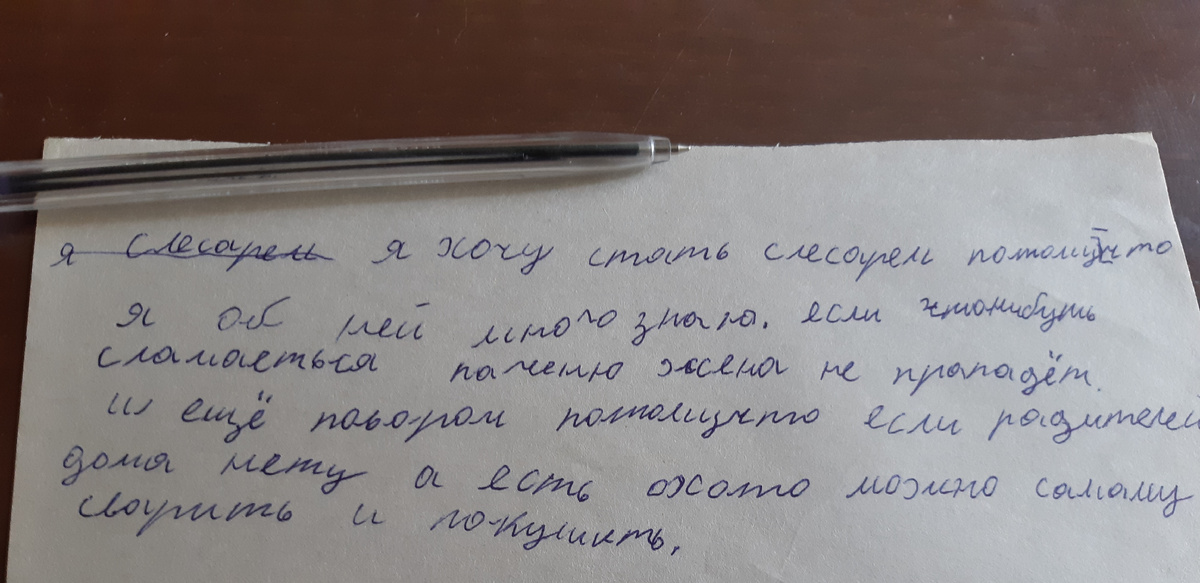 я слесарем я хочу стать слесарем потомучто
я об ней много знаю. если чтонибуть
сламаеться паченю жена не прападёт.
и ещё повором потомучто если радителей
дома нету а есть охото можно самаму
сварить и покушать.